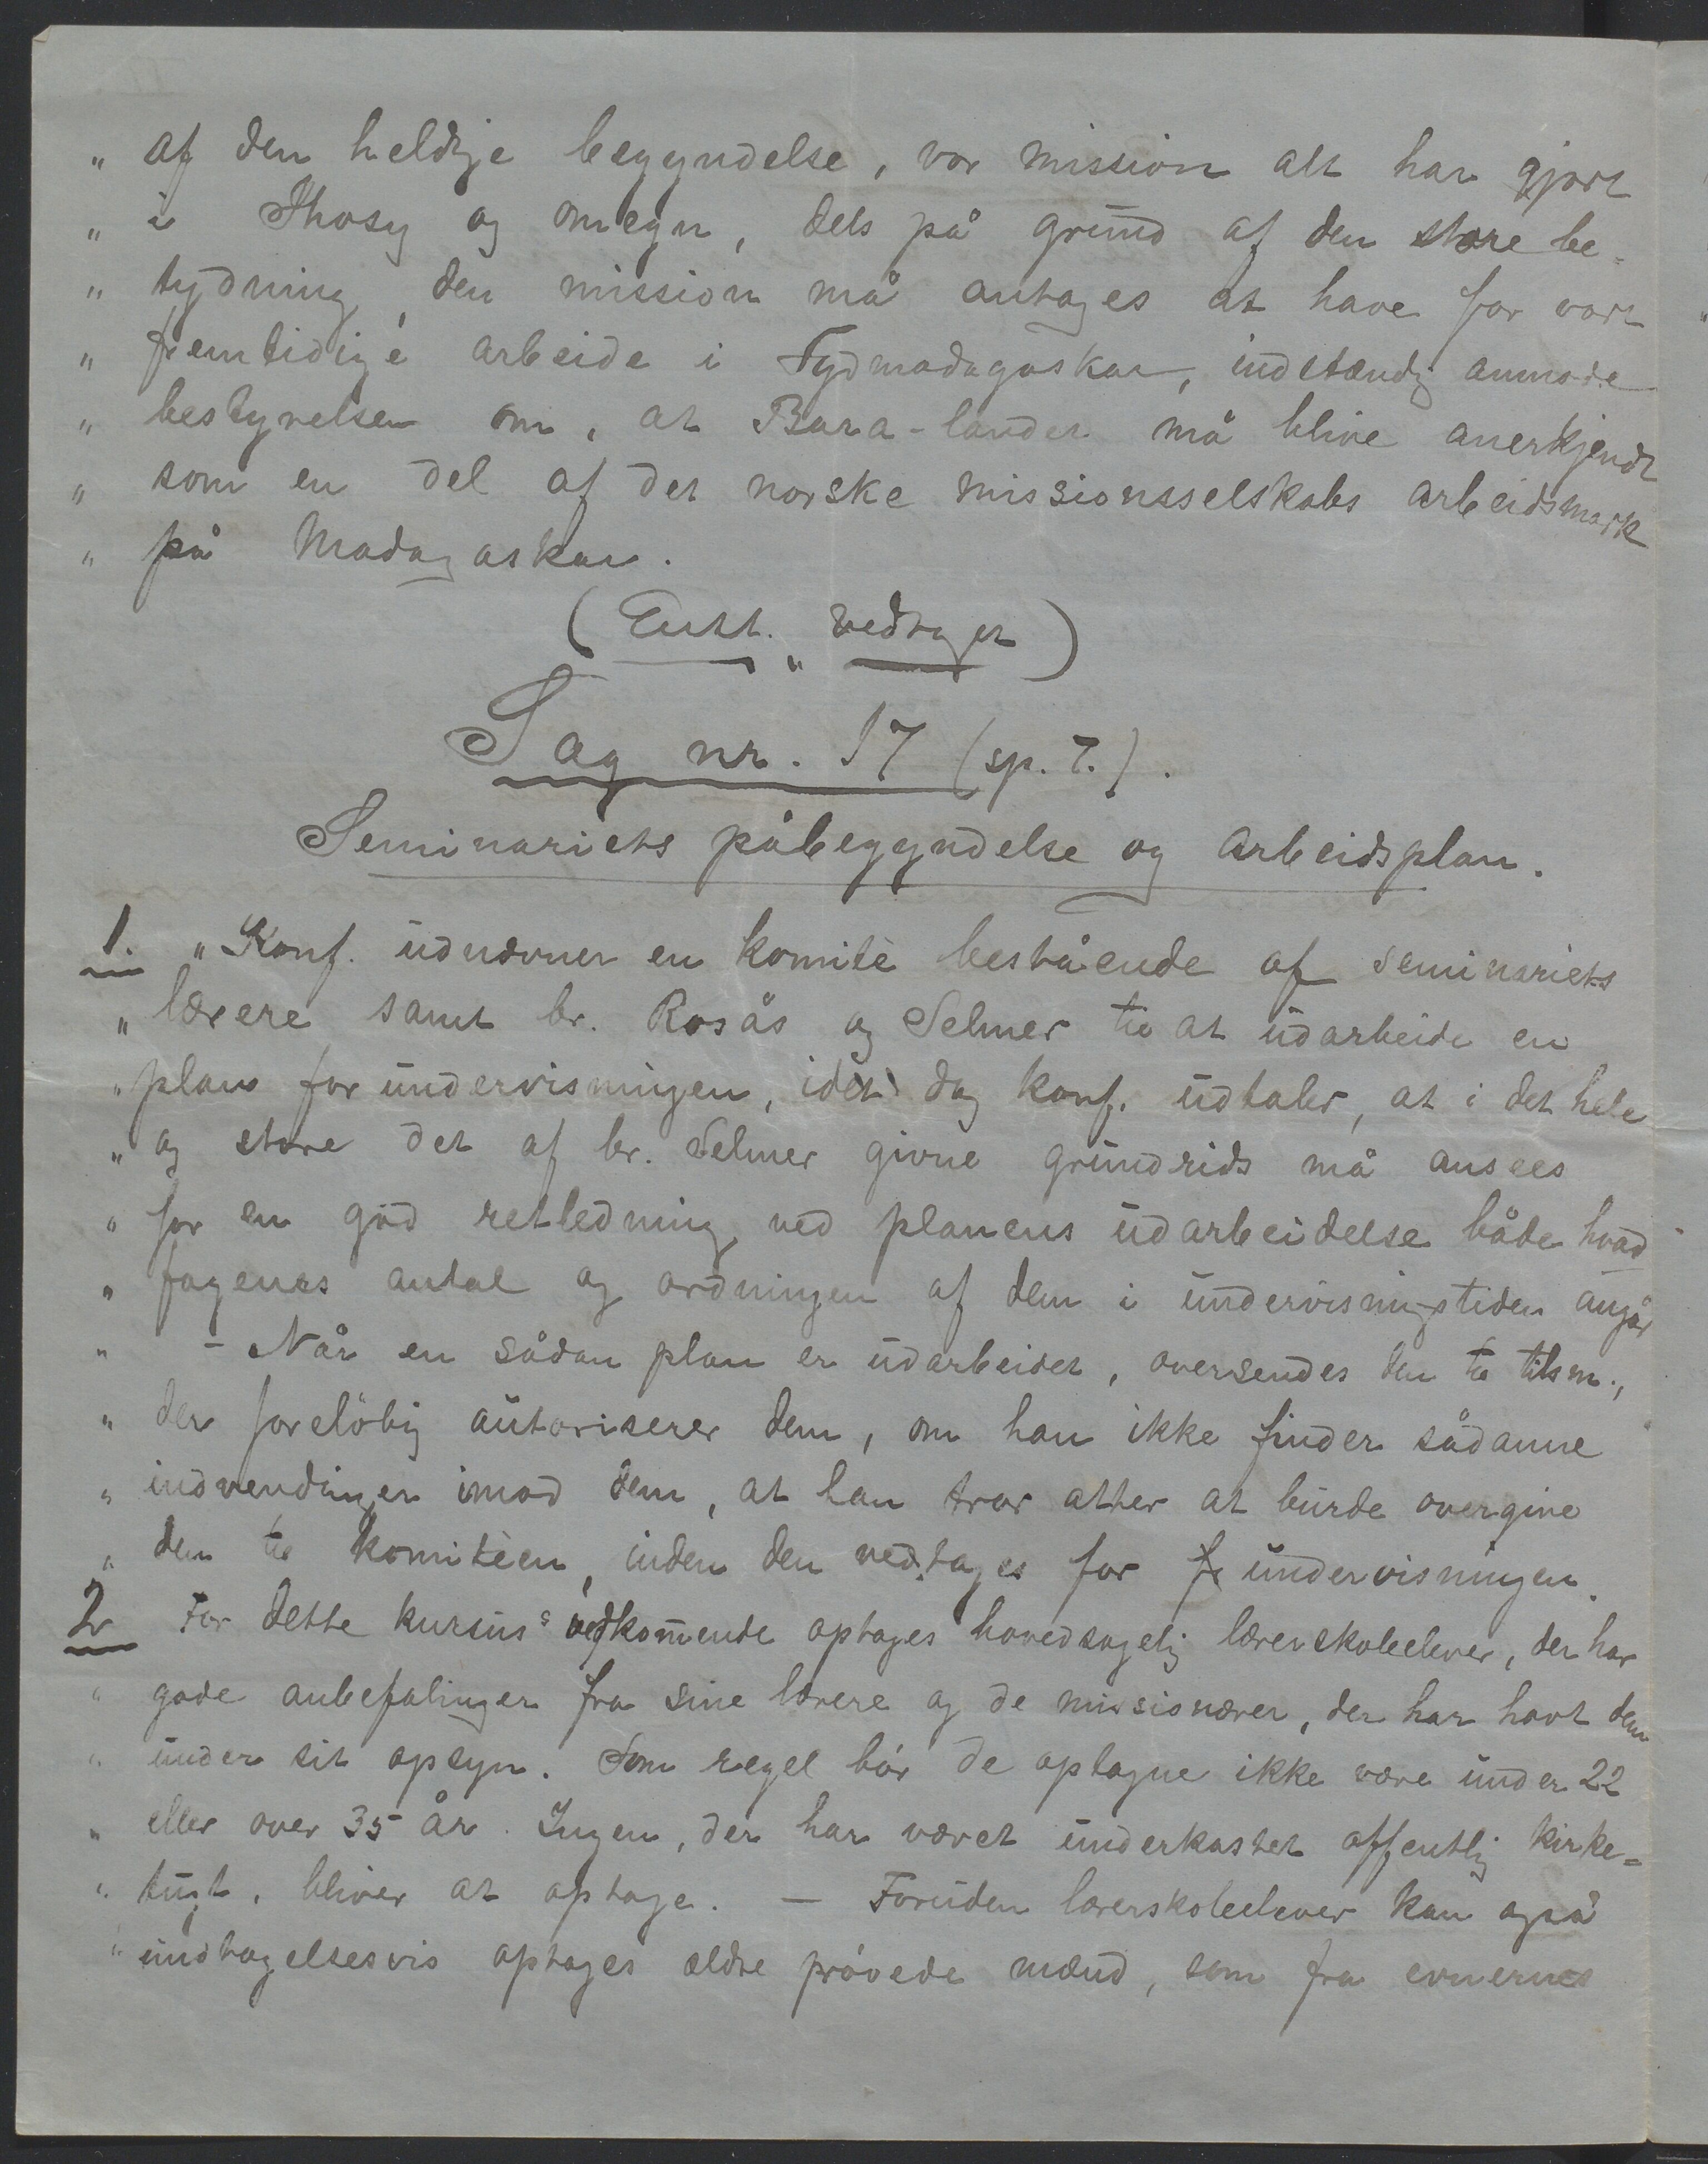 „ af den heldige begyndelse, vor mission alt har gjort
„ i Ihosy og omegn, dels på grund af den store be-
„ tydning, den mission må antages at have for vort
„ fremtidige arbeide i Sydmadagaskar, indstændig anmode
„ bestyrelsen om, at Bara-landet må blive anerkjendt
„ som en del af det norske missionsselskabs arbeidsmark
„ på Madagaskar.
(Enst. vedtaget)
Sag nr. 17 (sp. 7.).
Seminariets påbegyndelse og arbeidsplan.
1. „ Konf. udnævner en komité bestående af seminariets
„ lærere samt br. Rosås og Selmer til at udarbeide en
„ plan for undervisningen, idet dog konf. udtaler, at i det hele
„ og store det af br. Selmer givne grundrids må ansees
„ for en god retledning ved planens udarbeidelse både hvad
„ fagenes antal og ordningen af dem i undervisningstiden angår
„ - Når en sådan plan er udarbeidet, oversendes den til tilsm.,
„ der foreløbig autoriserer dem, om han ikke finder sådanne
„ indvendinger imod dem, at han tror atter at burde overgive
„ den til komitéen, inden den vedtages for fr undervisningen.
2 For dette kursus's vedkommende optages hovedsagelig lærerskoleelever, der har
„ gode anbefalinger fra sine lærere og de missionærer, der har havt dem
„ under sit opsyn. Som regel bör de optagne ikke være under 22
„ eller over 35 år. Ingen, der har været underkastet offentlig kirke-
„ tugt, bliver at optage. — Foruden lærerskoleelever kan også
„ undtagelsesvis optages ældre prövede mænd, som fra evnernes